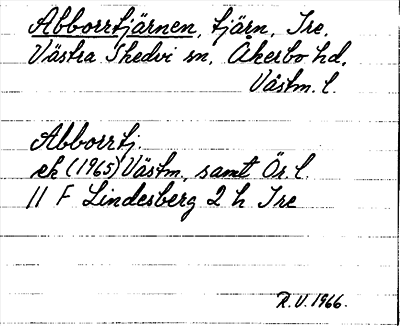 Abborrtjärnen, tjärn, Tre.
Västra Skedvi sn, Åkerbo hd,
Västm. l.
Abborrtj.
ek (1965) Västm, samt Ör. l.
11 F Lindesberg 2 h Tre
R.V. 1966.